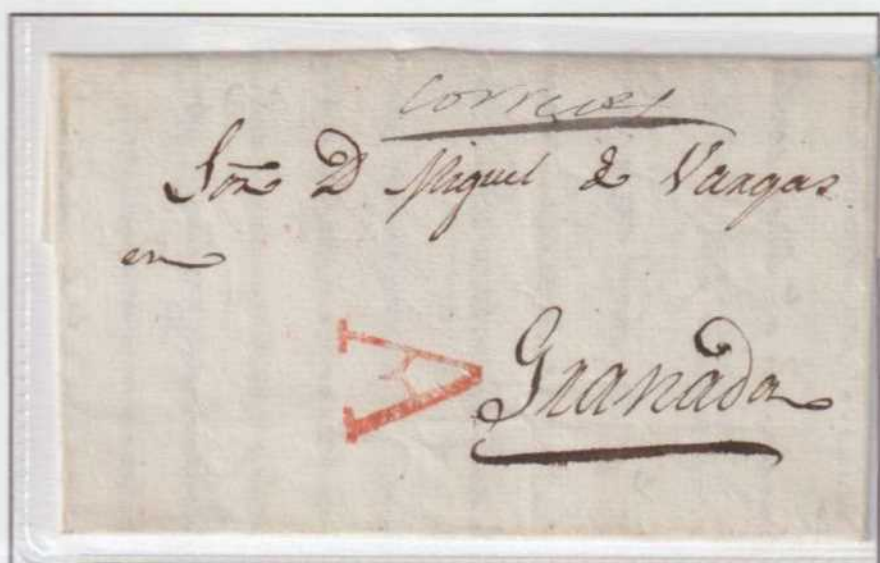 Correos
Sor D Miguel de Vargas
en
A Granada